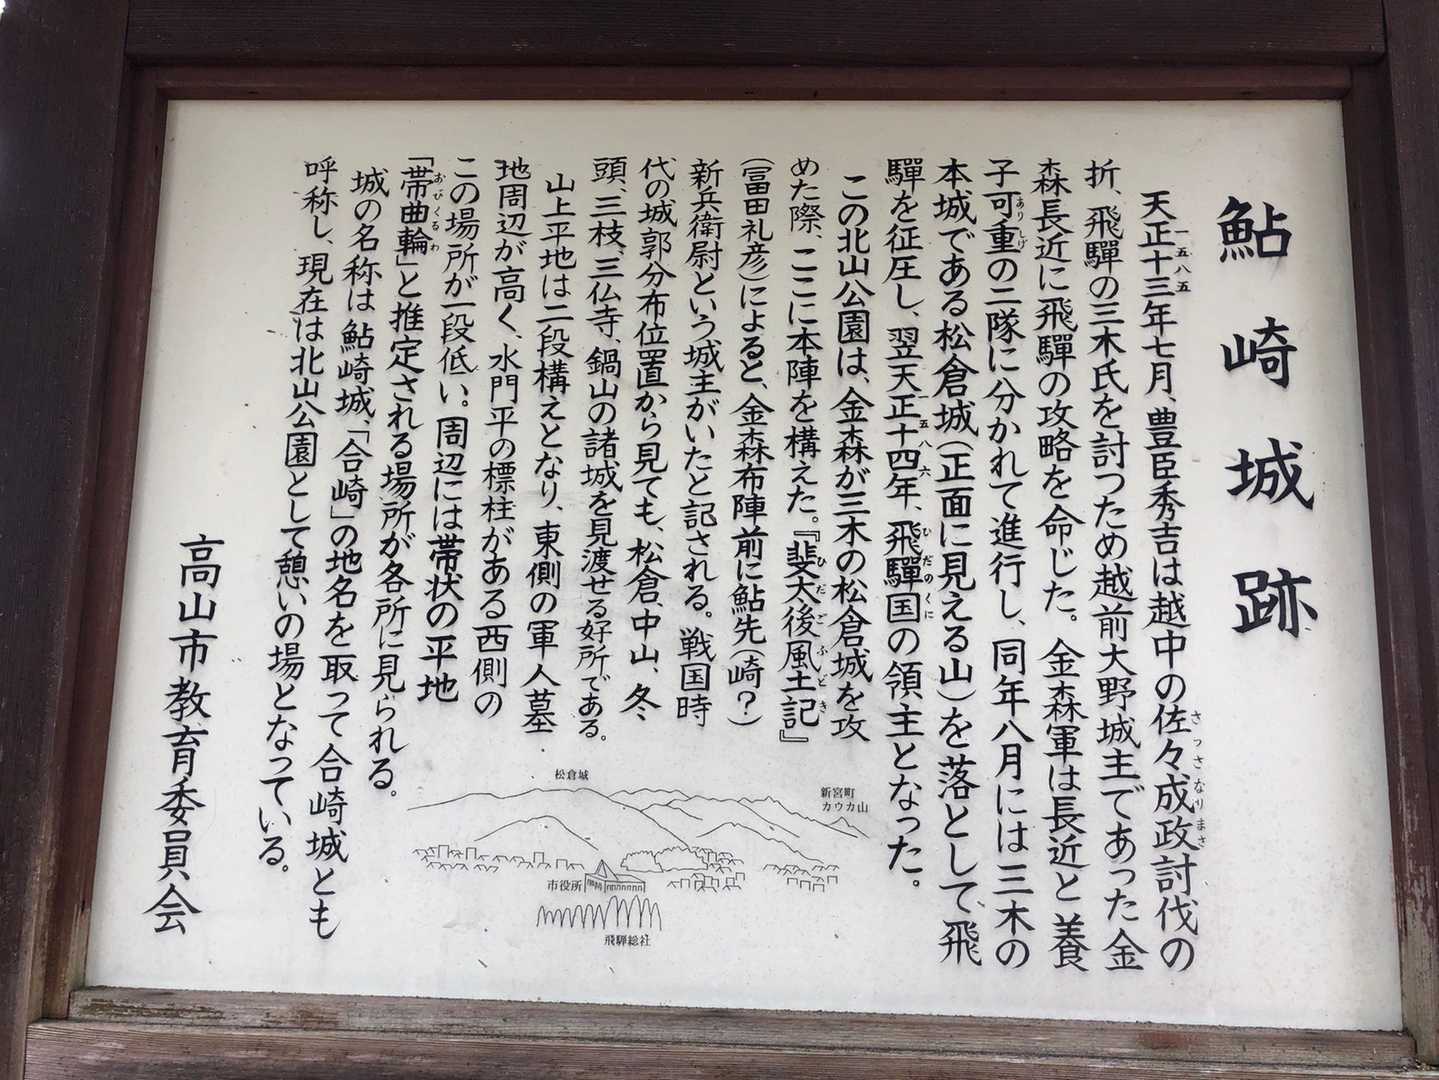 鮎崎城跡
天正十三年七月、豊臣秀吉は越中の佐々成政討伐の
一五八五
さっさなりまさ
折、飛騨の三木氏を討つため越前大野城主であった金
森長近に飛騨の攻略を命じた。金森軍は長近と養
子可重の二隊に分かれて進行し、同年八月には三木の
ありしげ
本城である松倉城(正面に見える山)を落として、飛
驒を征圧し、翌天正十四年、飛驒国の領主となった。
一五八六
ひだのくに
この北山公園は、金森が三木の松倉城を攻
めた際、ここに本陣を構えた。『斐太後風土記』
ひだごふどき
(冨田礼彦)によると、金森布陣前に鮎先(崎?)
新兵衛尉という城主がいたと記される。戦国時
代の城郭分布位置から見ても、松倉、中山、冬
頭、三枝、三仏寺、鍋山の諸城を見渡せる好所である。
山上平地は二段構えとなり、東側の軍人墓
地周辺が高く、水門平の標柱がある西側の
この場所が一段低い。周辺には帯状の平地
「帯曲輪」と推定される場所が各所に見られる。
おびくるわ
城の名称は鮎崎城、「合崎」の地名を取って合崎城とも
呼称し、現在は北山公園として憩いの場となっている。
高山市教育委員会
松倉城
新宮町
カウカ山
市役所
飛騨総社